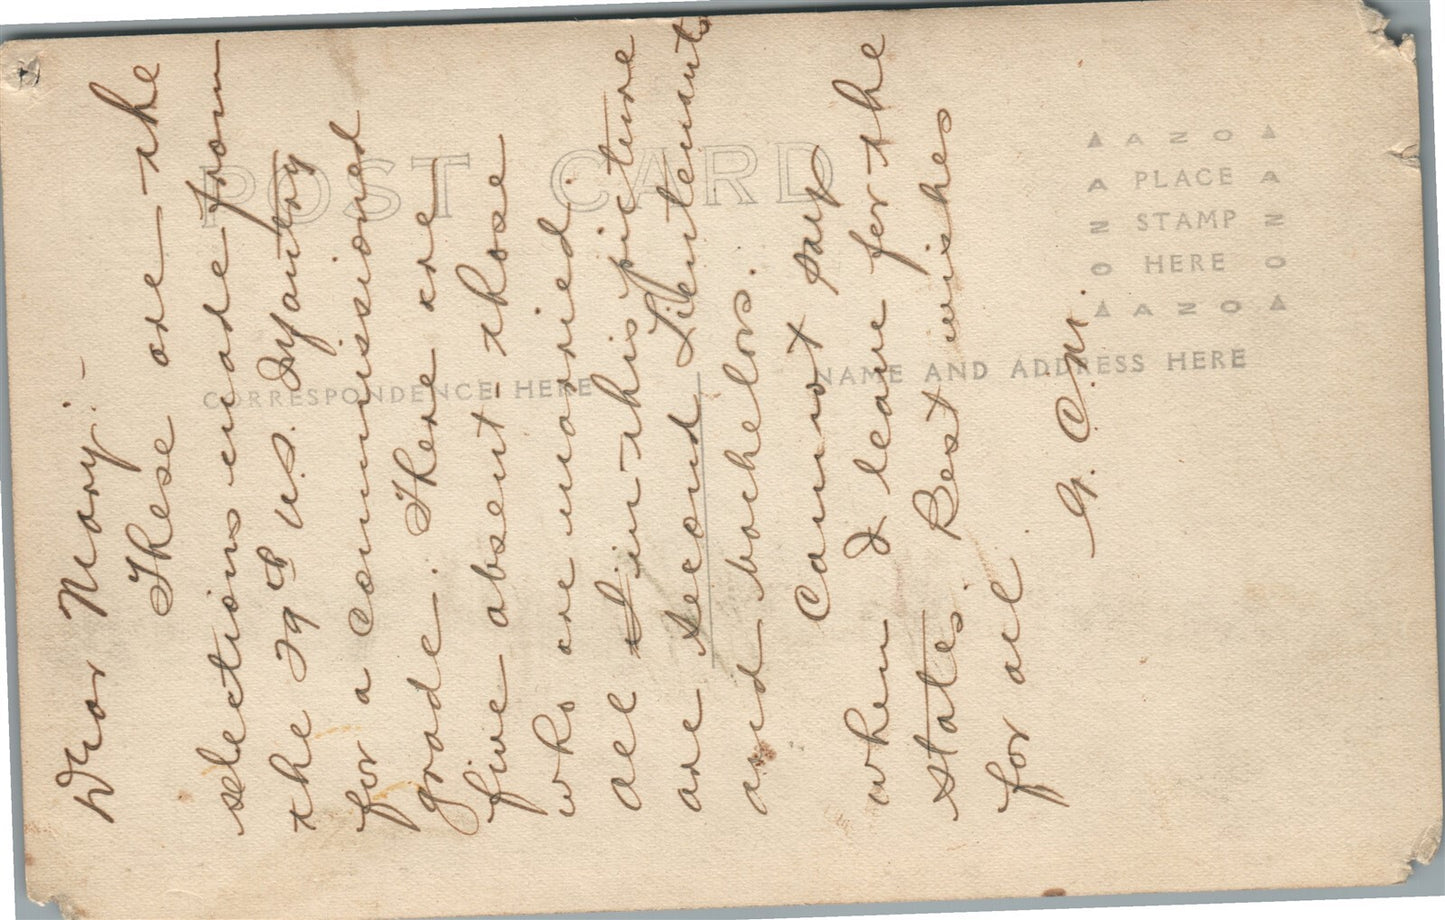 Dear Mary:-
These are the
selections made from
the 29th U.S. Infantry
for a commissioned
grade. There are
five absent - those
who are married.
All in this picture
are second Lieutenants
and bachelors.
Cannot say
when I leave for the
States. Best wishes
for all
G. C. M.
POST CARD
CORRESPONDENCE HERE
NAME AND ADDRESS HERE
AZO
PLACE
STAMP
HERE
AZO
AZO
AZO